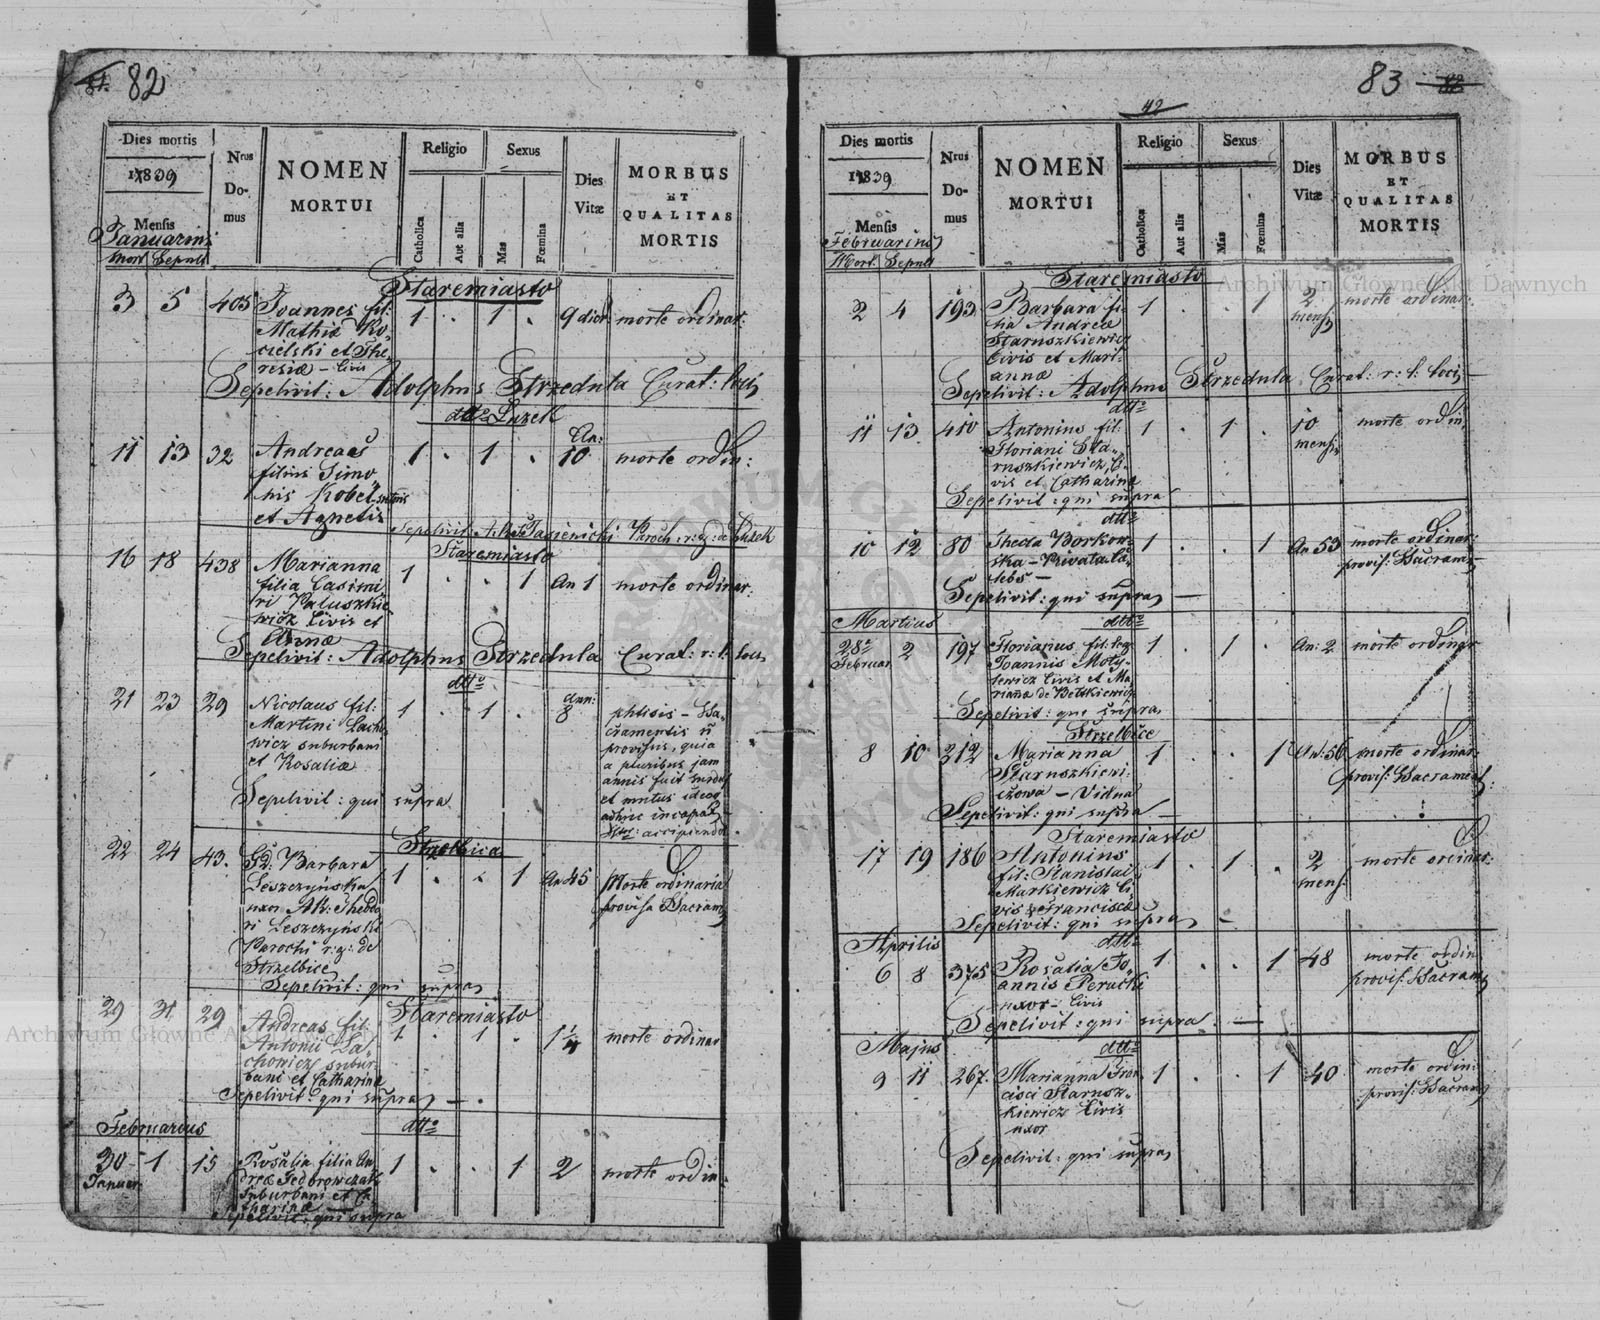 82
Dies mortis
1839
Mensis
Januarius
Mort. Sepult
Nrus
Do-
mus
NOMEN
MORTUI
Religio
Catholica
Aut alia
Sexus
Mas
Fœmina
Dies
Vitæ
MORBUS
ET
QUALITAS
MORTIS
Staremiasto
3 5 405 Joannes fil: 1 . 1 . 9 dier. morte ordinar:
Mathiæ Ko-
cielski et The-
resiæ - Civis
Sepelivit: Adolphus Strzedula Curat: loci
dtto Luzek
11 13 32 Andreas 1 . 1 . An: 10 morte ordin:
filius Simo-
nis Kobel
et Agnetis
Sepelivit: Paroch: r: g: de Luzek
Staremiasto
16 18 438 Marianna 1 . . 1 An 1 morte ordinar.
filia Casimi
ri Paluszkie
wicz Civis et
Annæ
Sepelivit: Adolphus Strzedula Curat: r: l: loci
dtto
21 23 29 Nicolaus fil: 1 . 1 . ann: 8 phtisis - Sa-
Martini Lacho
wicz suburbani
et Rosaliæ
cramentis n̄
provisus, quia
a pluribus jam
annis fuit surdus
et mutus ideoq
adhuc incapax
accipiendi
Sepelivit: qui supra
Strzelbice
22 24 43. Barbara 1 . . 1 An 45 Morte ordinaria
Leszczyńska provisa Sacram
uxor AR: Theodo
ri Leszczyński
Parochi r: g: de
Strzelbice
Sepelivit: qui supra
Staremiasto
29 31 29 Andreas fil: 1 . 1 . morte ordinar
Antonii La-
chowicz subur-
bani et Catharinæ
Sepelivit: qui supra
Februarius dtto
30 1 15 Rosalia filia An 1 . . 1 2 morte ordin.
Januar. dreæ Fedorowczak
suburbani et Ca
tharinæ
Sepelivit: qui supra
83
42
Dies mortis
1839
Mensis
Februarius
Mort. Sepult
Nrus
Do-
mus
NOMEN
MORTUI
Religio
Catholica
Aut alia
Sexus
Mas
Fœmina
Dies
Vitæ
MORBUS
ET
QUALITAS
MORTIS
Staremiasto
2 4 193 Barbara fi- 1 . . 1 2 mensi morte ordinar:
lia Andreæ
Staruszkiewicz
Civis et Mari-
annæ
Sepelivit: Adolphus Strzedula Curat: r: l: loci
dtto
11 13 410 Antonius fil: 1 . 1 . 10 mensi morte ordin.
Floriani Sta-
ruszkiewicz Ci-
vis et Catharinæ
Sepelivit: qui supra
dtto
10 12 80 Thecla Borkow- 1 . . 1 An 53 morte ordinar:
ska - Privata Cæ- provis: Sacram
lebs -
Sepelivit: qui supra
Martius dtto
28a 2 197 Florianus fil: leg 1 . 1 . An: 2 morte ordinar
Februar Joannis Moty-
lewicz Civis et Ma
rianæ de Betskiewicz
Sepelivit: qui supra
Strzelbice
8 10 212 Marianna 1 . . 1 An. 56 morte ordinar.
Staruszkiewi- provis: Sacrament.
czowa - Vidua
Sepelivit: qui supra
Staremiasto
17 19 186 Antonius 1 . 1 . 2 mens: morte ordinar:
fil: Stanislai
Markiewicz Ci
vis & Franciscæ
Sepelivit: qui supra
Aprilis dtto
6 8 375 Rosalia Jo- 1 . . 1 48 morte ordin
annis Perucki provis: Sacram
uxor - Civis
Sepelivit: qui supra
Majus dtto
9 11 267. Marianna Fran 1 . . 1 40 morte ordin:
cisci Starusz- provis: Sacram
kiewicz Civis
uxor
Sepelivit: qui supra
Archiwum Główne Akt Dawnych
Archiwum Główne A